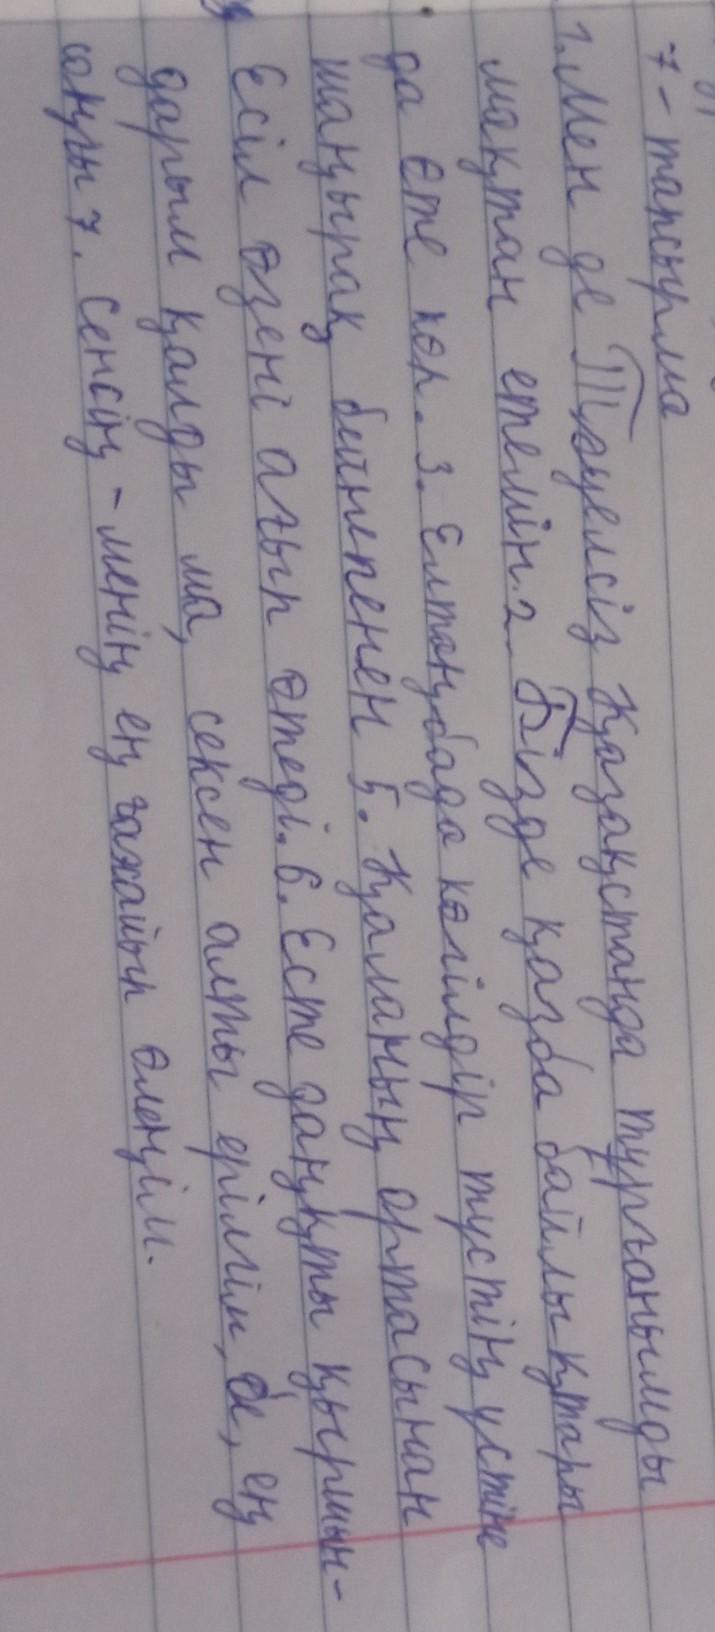 7 - тапсырма
1. Мен де Тәуелсіз Қазақстанда тұрғанымды
мақтан етемін. 2. Бізде қазба байлықтары
да өте көп. 3. Елтаңбада көгілдір түстің үстіне
шаңырақ бейнеленен 5. Қаланың ортасынан
Есіл өзені ағып өтеді. 6. Есте даңқты қырмын-
дарым қалды ма, сексен алты ерілгім, ең
соңғы 7. Сенсің - менің ең ғажайып өлеңім.